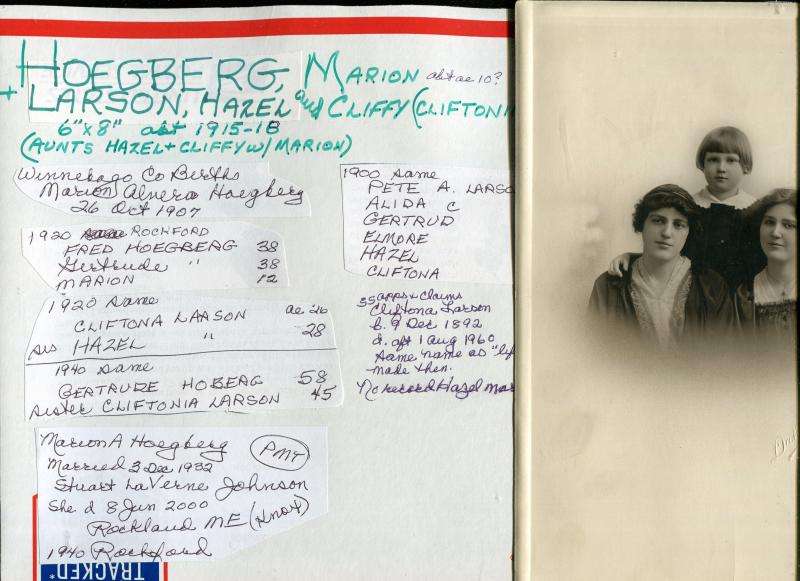 HOEGBERG, MARION abt ae 10?
+ LARSON, HAZEL and CLIFFY (CLIFTONI
6"x8" abt 1915-18
(AUNTS HAZEL + CLIFFY w/ MARION)
Winnebago Co Births
Marion Alnera Hoegberg
26 Oct 1907
1920 ROCKFORD
FRED HOEGBERG 38
Gertrude " 38
MARION 12
1920 same
CLIFTONA LARSON ae 26
sis HAZEL " 28
1940 same
GERTRUDE HOBERG 58
sister CLIFTONIA LARSON 45
Marion A Hoegberg PMT
Married 3 Dec 1932
Stuart LaVerne Johnson
She d 8 Jun 2000
Rockland ME (Knox)
1940 Rockford
TRACKED*
1900 same
PETE A. LARSO
ALIDA C
GERTRUD
ELMORE
HAZEL
CLIFTONA
35 apps + Claims
Cliftona Larson
b. 9 Dec 1892
d. aft 1 Aug 1960
same name as
made then.
No record Hazel mar